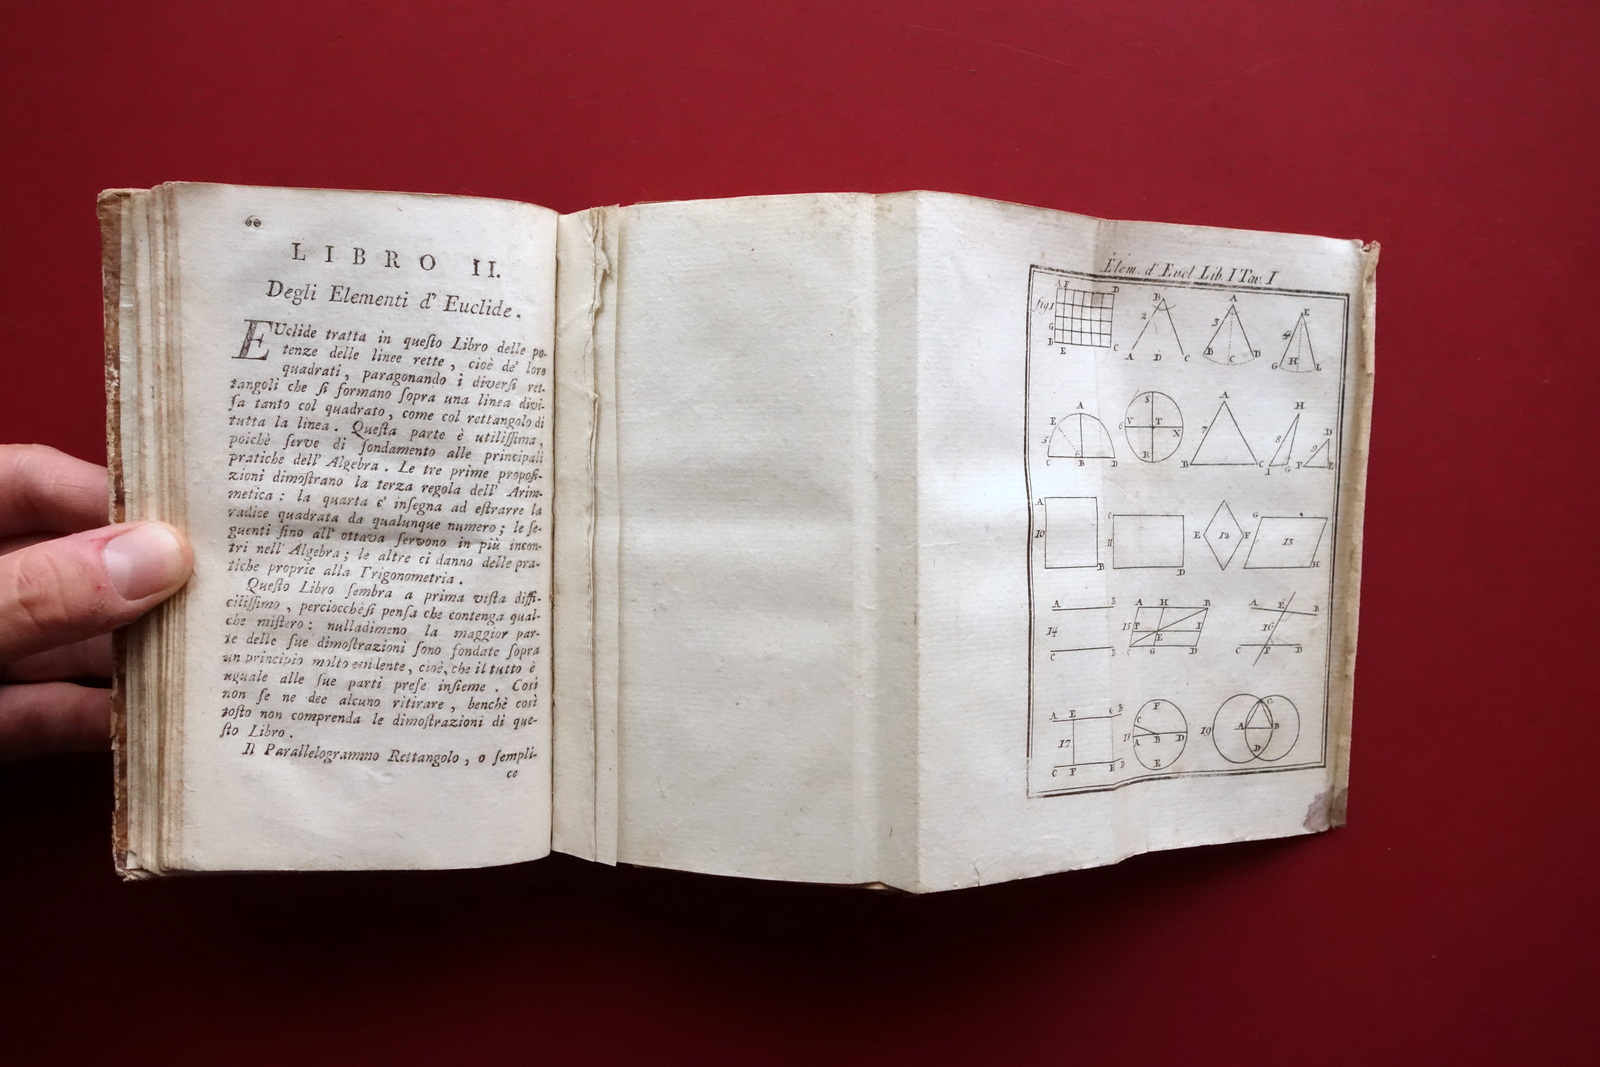 60
LIBRO II.
Degli Elementi d' Euclide.
EUclide tratta in queſto Libro delle po-
tenze delle linee rette, cioè de' loro
quadrati, paragonando i diverſi ret-
tangoli che ſi formano ſopra una linea divi-
ſa tanto col quadrato, come col rettangolo di
tutta la linea. Queſta parte è utiliſſima,
poichè ſerve di fondamento alle principali
pratiche dell' Algebra. Le tre prime propoſi-
zioni dimoſtrano la terza regola dell' Arim-
metica: la quarta c' inſegna ad eſtrarre la
radice quadrata da qualunque numero; le ſe-
guenti fino all' ottava ſervono in più incon-
tri nell' Algebra; le altre ci danno delle pra-
tiche proprie alla Trigonometria.
Queſto Libro ſembra a prima viſta diffi-
ciliſſimo, perciocchè ſi penſa che contenga qual-
che miſtero: nulladimeno la maggior par-
te delle ſue dimoſtrazioni ſono fondate ſopra
un principio molto evidente, cioè, che il tutto è
uguale alle ſue parti preſe inſieme. Così
non ſe ne dee alcuno ritirare, benchè così
toſto non comprenda le dimoſtrazioni di que-
ſto Libro.
Il Parallelogrammo Rettangolo, o ſempli-
ce
Elem. d' Eucl Lib I Tav. I
fig 1 A F D G B E C
2 B A D C
3 A B C D
4 E G H L
5 E A C B D
6 S V T X R
7 A B C
8 H I G
9 D F E
10 A B
11 C D
12 E F
13 G H
14 A B C D
15 A H B T E I C G D
16 A E B C F D
17 A E B C F D
18 F C A B D E
19 C A B D